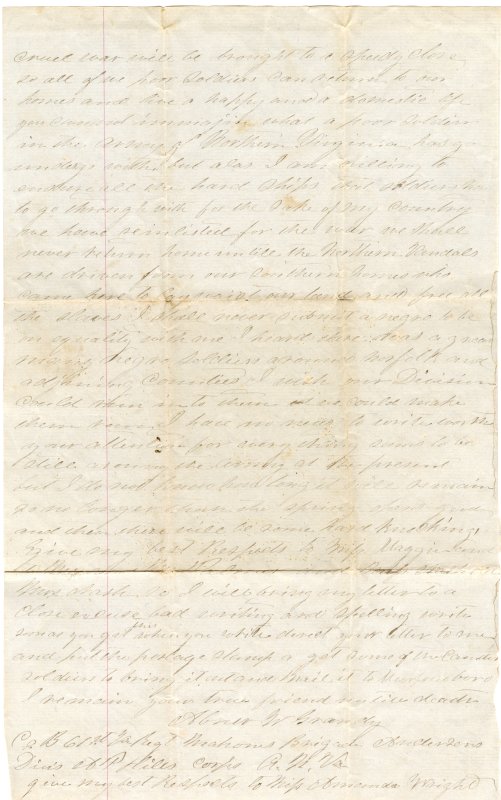 cruel war will be brought to a speedy close
so all of we poor soldiers can return to our
homes and live a happy and a domestic life
you cannot immagin what a poor soldier
in the army of Northern Virginia has to
undergo with but alas I am willing to
endure all the hard ships that soldiers has
to go through with for the sake of my Country
we have reinlisted for the war we shall
never return home untill the Northern Vandals
are driven from our Southern homes who
came here to our land and free all
the slaves I shall never submit a negro to be
on equality with me I heard there was a great
many negro soldiers around norfolk and
adjining Counties I wish our Division
could run in to them we could make
them run I have no news to write worth
your attention for every thing seems to be
still among the army at the present
but I do not know how long it will remain
so no longer than the spring
and then there will be some hard
give my best Respects to Miss Maggie

so I will bring my letter to a
close excuse bad writing and spelling write
soon as you get this when you write direct your letter to me
and put the postage stamp get some of the Camden
soldiers to bring it out and mail it to Murfreesboro
I remain your true friend untill death
Abner W Grandy
Co B 61st Va Regt Mahones Brigade Andersons
Divis A P Hills corps A. N. Va
give my best Respects to Miss Amanda Wright